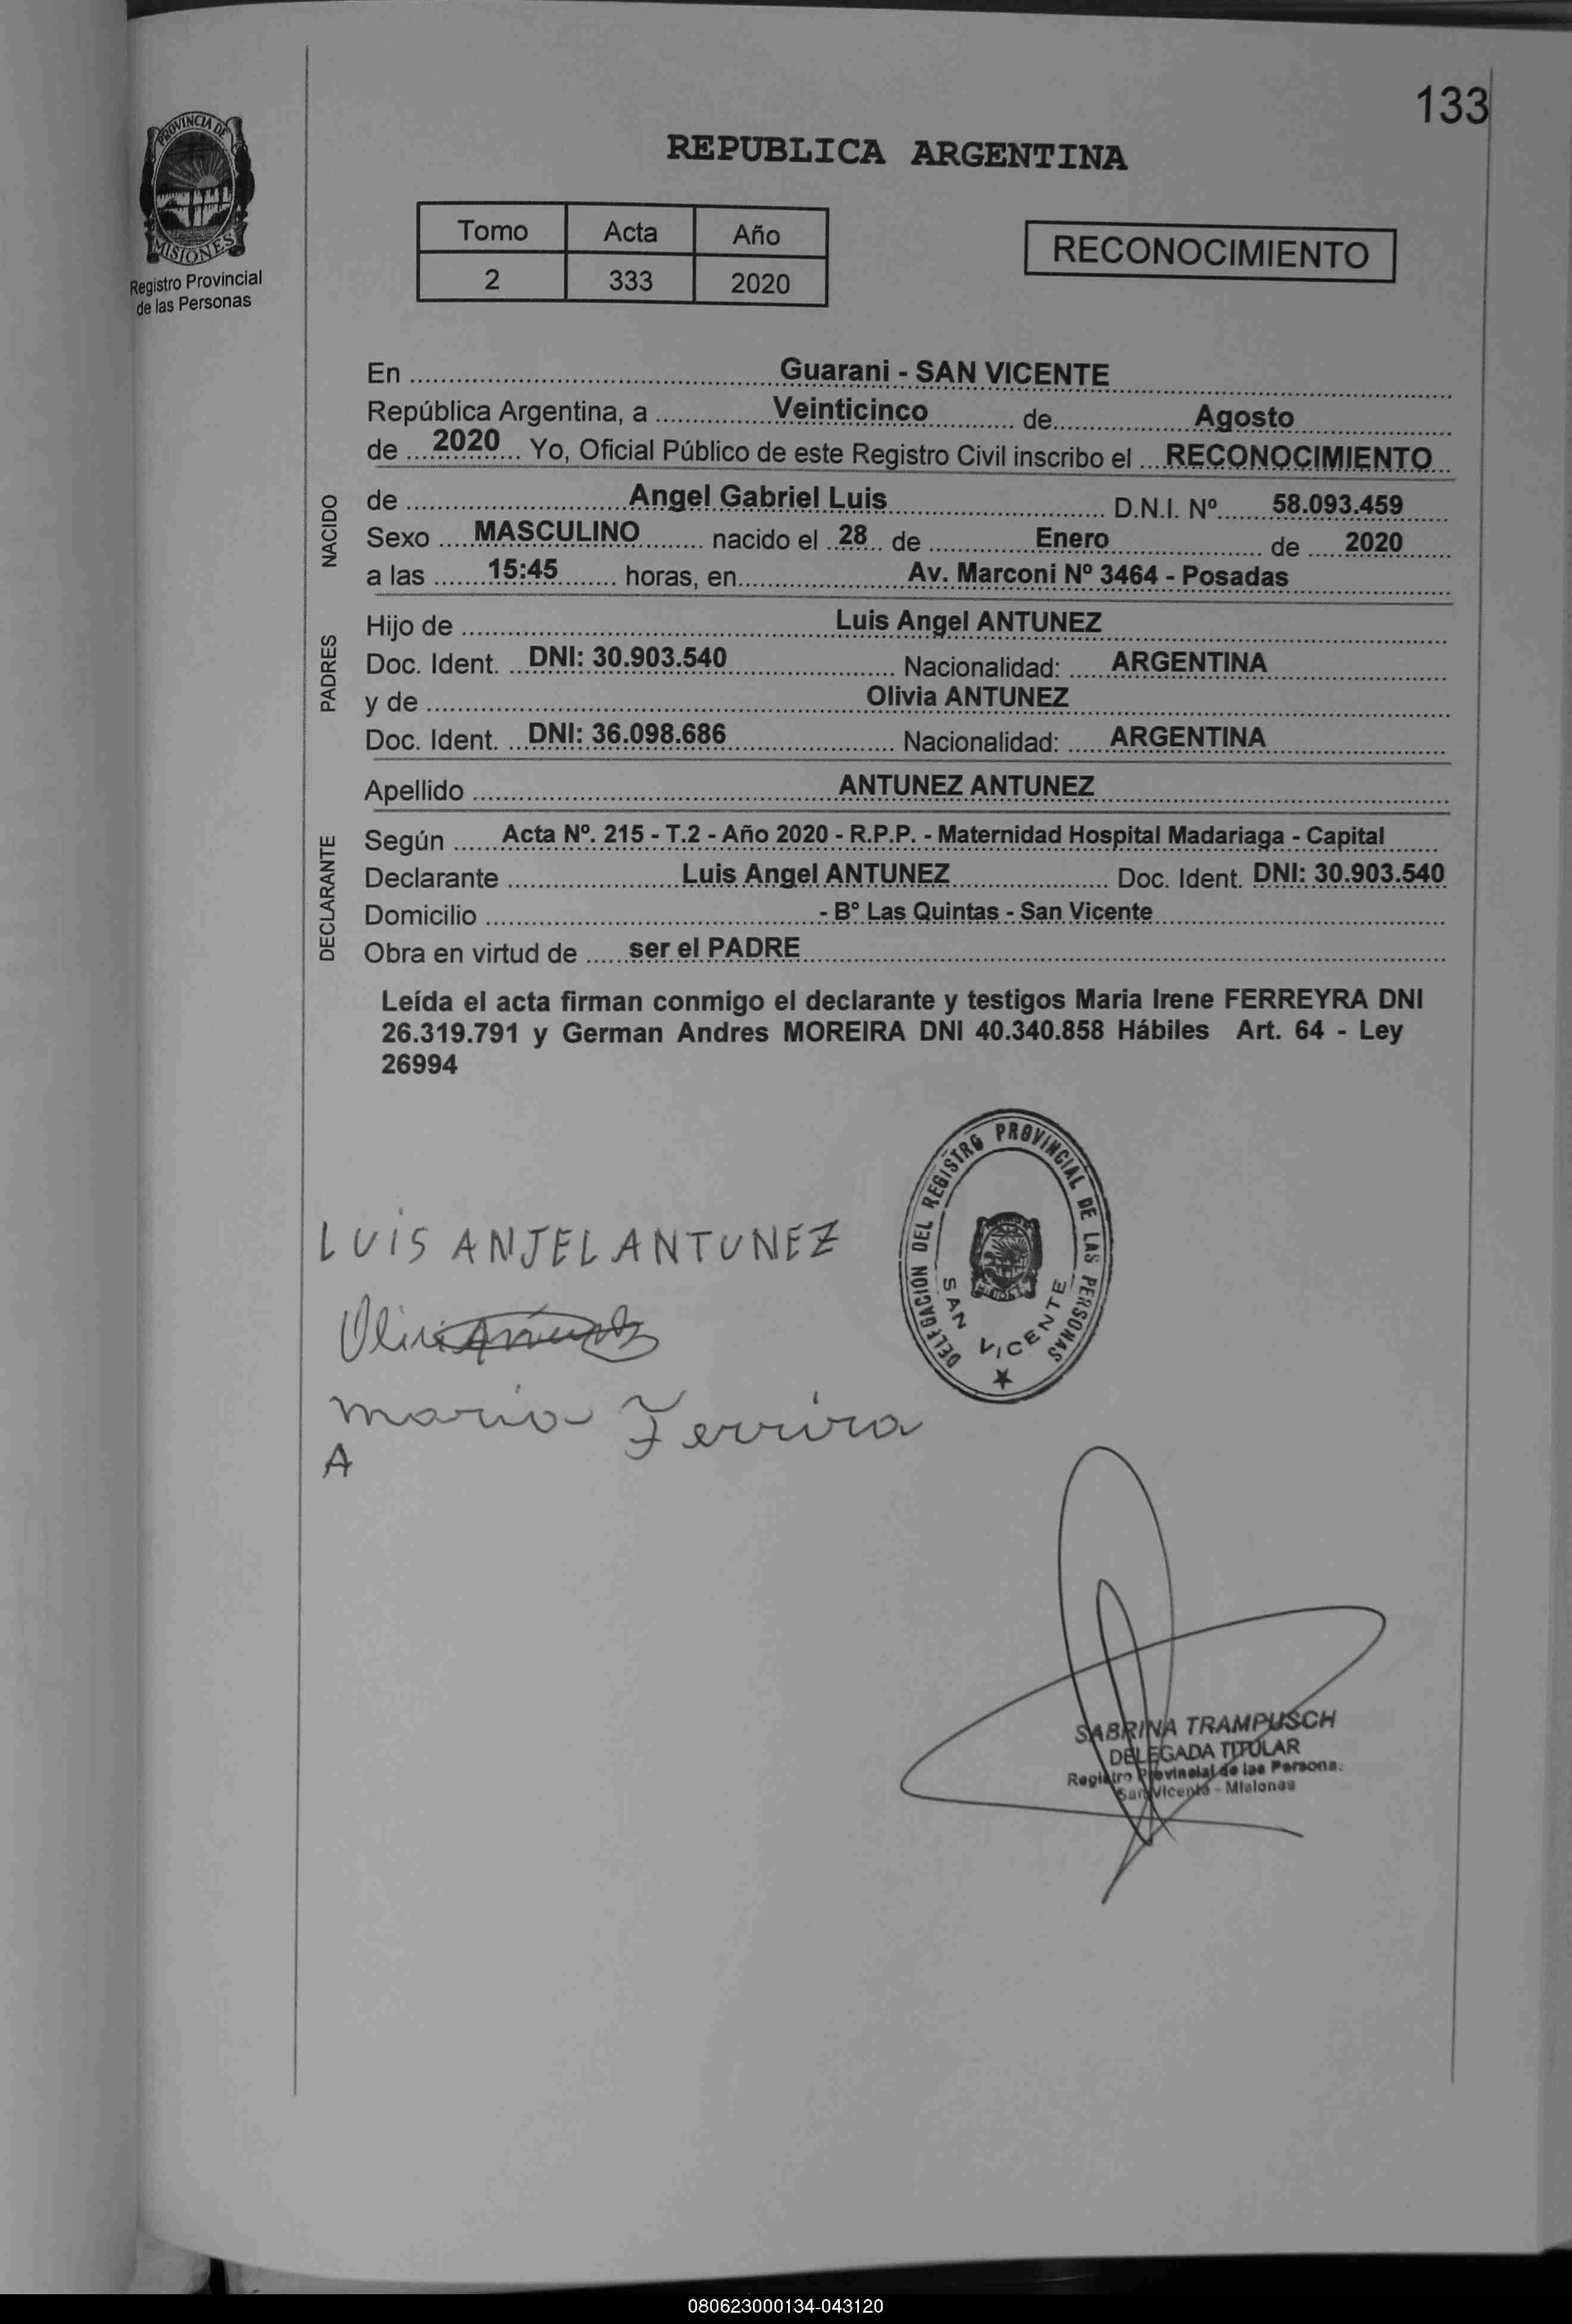 133
PROVINCIA DE
MISIONES
Registro Provincial
de las Personas
REPUBLICA ARGENTINA
Tomo Acta Año
2 333 2020
RECONOCIMIENTO
En Guarani - SAN VICENTE
República Argentina, a Veinticinco de Agosto
de 2020 Yo, Oficial Público de este Registro Civil inscribo el RECONOCIMIENTO
NACIDO
de Angel Gabriel Luis D.N.I. Nº 58.093.459
Sexo MASCULINO nacido el 28 de Enero de 2020
a las 15:45 horas, en Av. Marconi Nº 3464 - Posadas
PADRES
Hijo de Luis Angel ANTUNEZ
Doc. Ident. DNI: 30.903.540 Nacionalidad: ARGENTINA
y de Olivia ANTUNEZ
Doc. Ident. DNI: 36.098.686 Nacionalidad: ARGENTINA
Apellido ANTUNEZ ANTUNEZ
DECLARANTE
Según Acta Nº. 215 - T.2 - Año 2020 - R.P.P. - Maternidad Hospital Madariaga - Capital
Declarante Luis Angel ANTUNEZ Doc. Ident. DNI: 30.903.540
Domicilio - B° Las Quintas - San Vicente
Obra en virtud de ser el PADRE
Leída el acta firman conmigo el declarante y testigos Maria Irene FERREYRA DNI
26.319.791 y German Andres MOREIRA DNI 40.340.858 Hábiles Art. 64 - Ley
26994
DELEGACION DEL REGISTRO PROVINCIAL DE LAS PERSONAS
SAN VICENTE
LUIS ANJEL ANTUNEZ
maria Ferrira
A
SABRINA TRAMPUSCH
DELEGADA TITULAR
Registro Provincial de las Persona.
San Vicente - Misiones
080623000134-043120